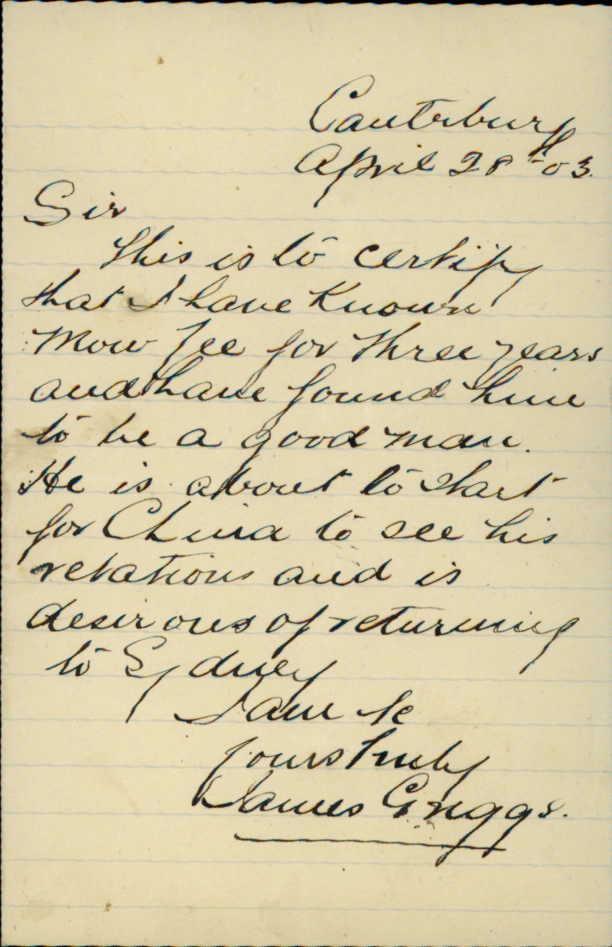 Canterbury
April 28th 03.
Sir
This is to certify
that I have Known
Mow Jee for three years
and have found him
to be a good man.
He is about to start
for China to see his
relations and is
desirous of returning
to Sydney
I am &c
yours truly
James Griggs.